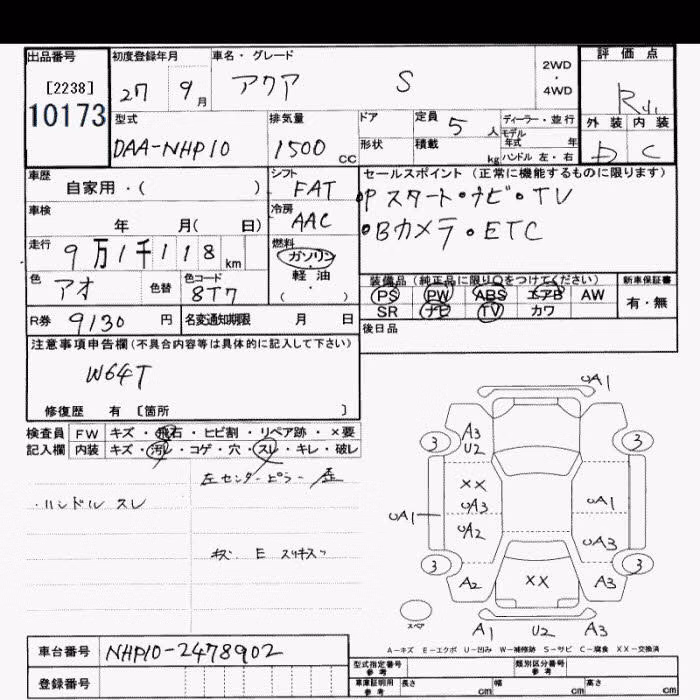 出品番号 初度登録年月 車名・グレード 2WD・4WD 評価点
[2238] 27 9月 アクア S R
10173 型式 排気量 ドア 定員 5人 ディーラー・並行 外装 内装
DAA-NHP10 1500cc 形状 積載 kg モデル年式 年 D C
ハンドル 左・右
車歴 シフト セールスポイント(正常に機能するものに限ります)
自家用・( ) FAT ・Pスタート・ナビ・TV
車検 冷房 ・Bカメラ・ETC
年 月( 日) AAC
走行 9万1千118km 燃料
ガソリン
色 アオ 色替 色コード 8T7 軽油 ( ) 装備品(純正品に限り○をつけてください) 新車保証書
PS PW ABS エアB AW 有・無
R券 9130円 名変通知期限 月 日 SR ナビ TV カワ
注意事項申告欄(不具合内容等は具体的に記入して下さい) 後日品
W64T
修復歴 有 [箇所 ]
検査員 FW キズ・飛石・ヒビ割・リペア跡・×要
記入欄 内装 キズ・汚レ・コゲ・穴・スレ・キレ・破レ
左センターピラー
・ハンドル スレ
E
UA1
3 A3 U2 3
XX UA3 UA1
UA1 UA2 UA3
3 A2 XX A3 3
スペア A1 U2 A3
A-キズ E-エクボ U-凹み W-補修跡 S-サビ C-腐食 XX-交換済
車台番号 NHP10-2478902
型式指定番号 参考 類別区分番号 参考
登録番号 車庫証明用 参考 長さ cm 幅 cm 高さ cm